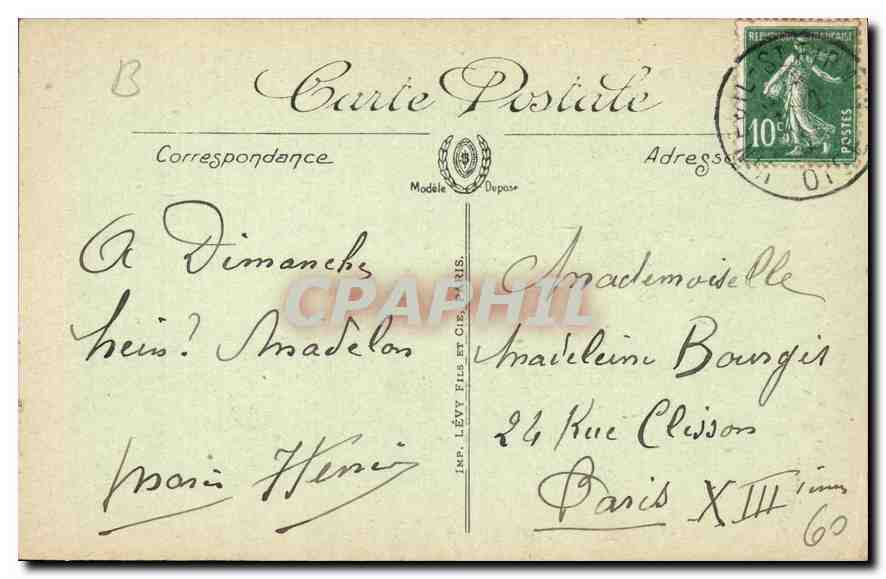 B
Carte Postale
Correspondance
Adresse
Modèle Depose
REPUBLIQUE FRANCAISE
10c
POSTES
OISE
A Dimanche
hein? Madelon
Marie Henri
IMP. LÉVY FILS ET CIE, PARIS.
CPAPHIL
Mademoiselle
Madeleine Bourgis
24 Rue Clisson
Paris XIIIième
60